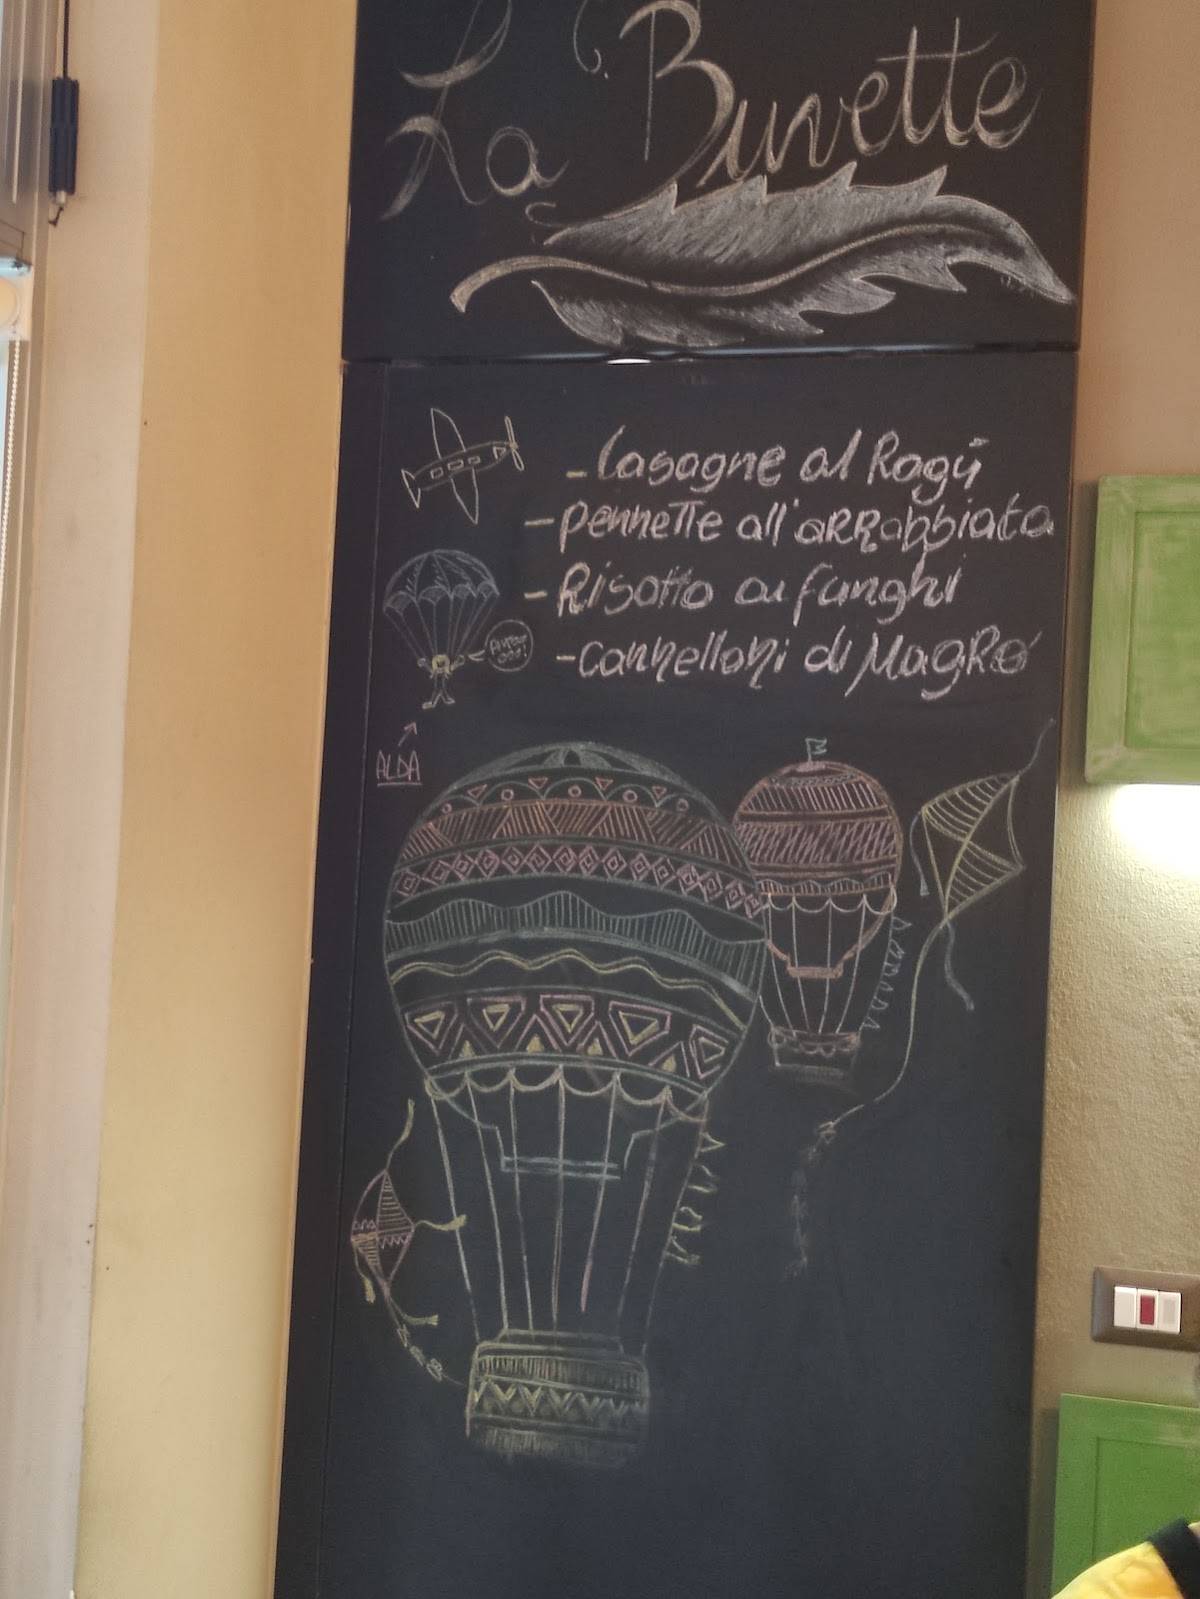 La Buvette
- Lasagne al Ragù
- pennette all'arrabbiata
- Risotto ai funghi
- cannelloni di Magro
ALDA